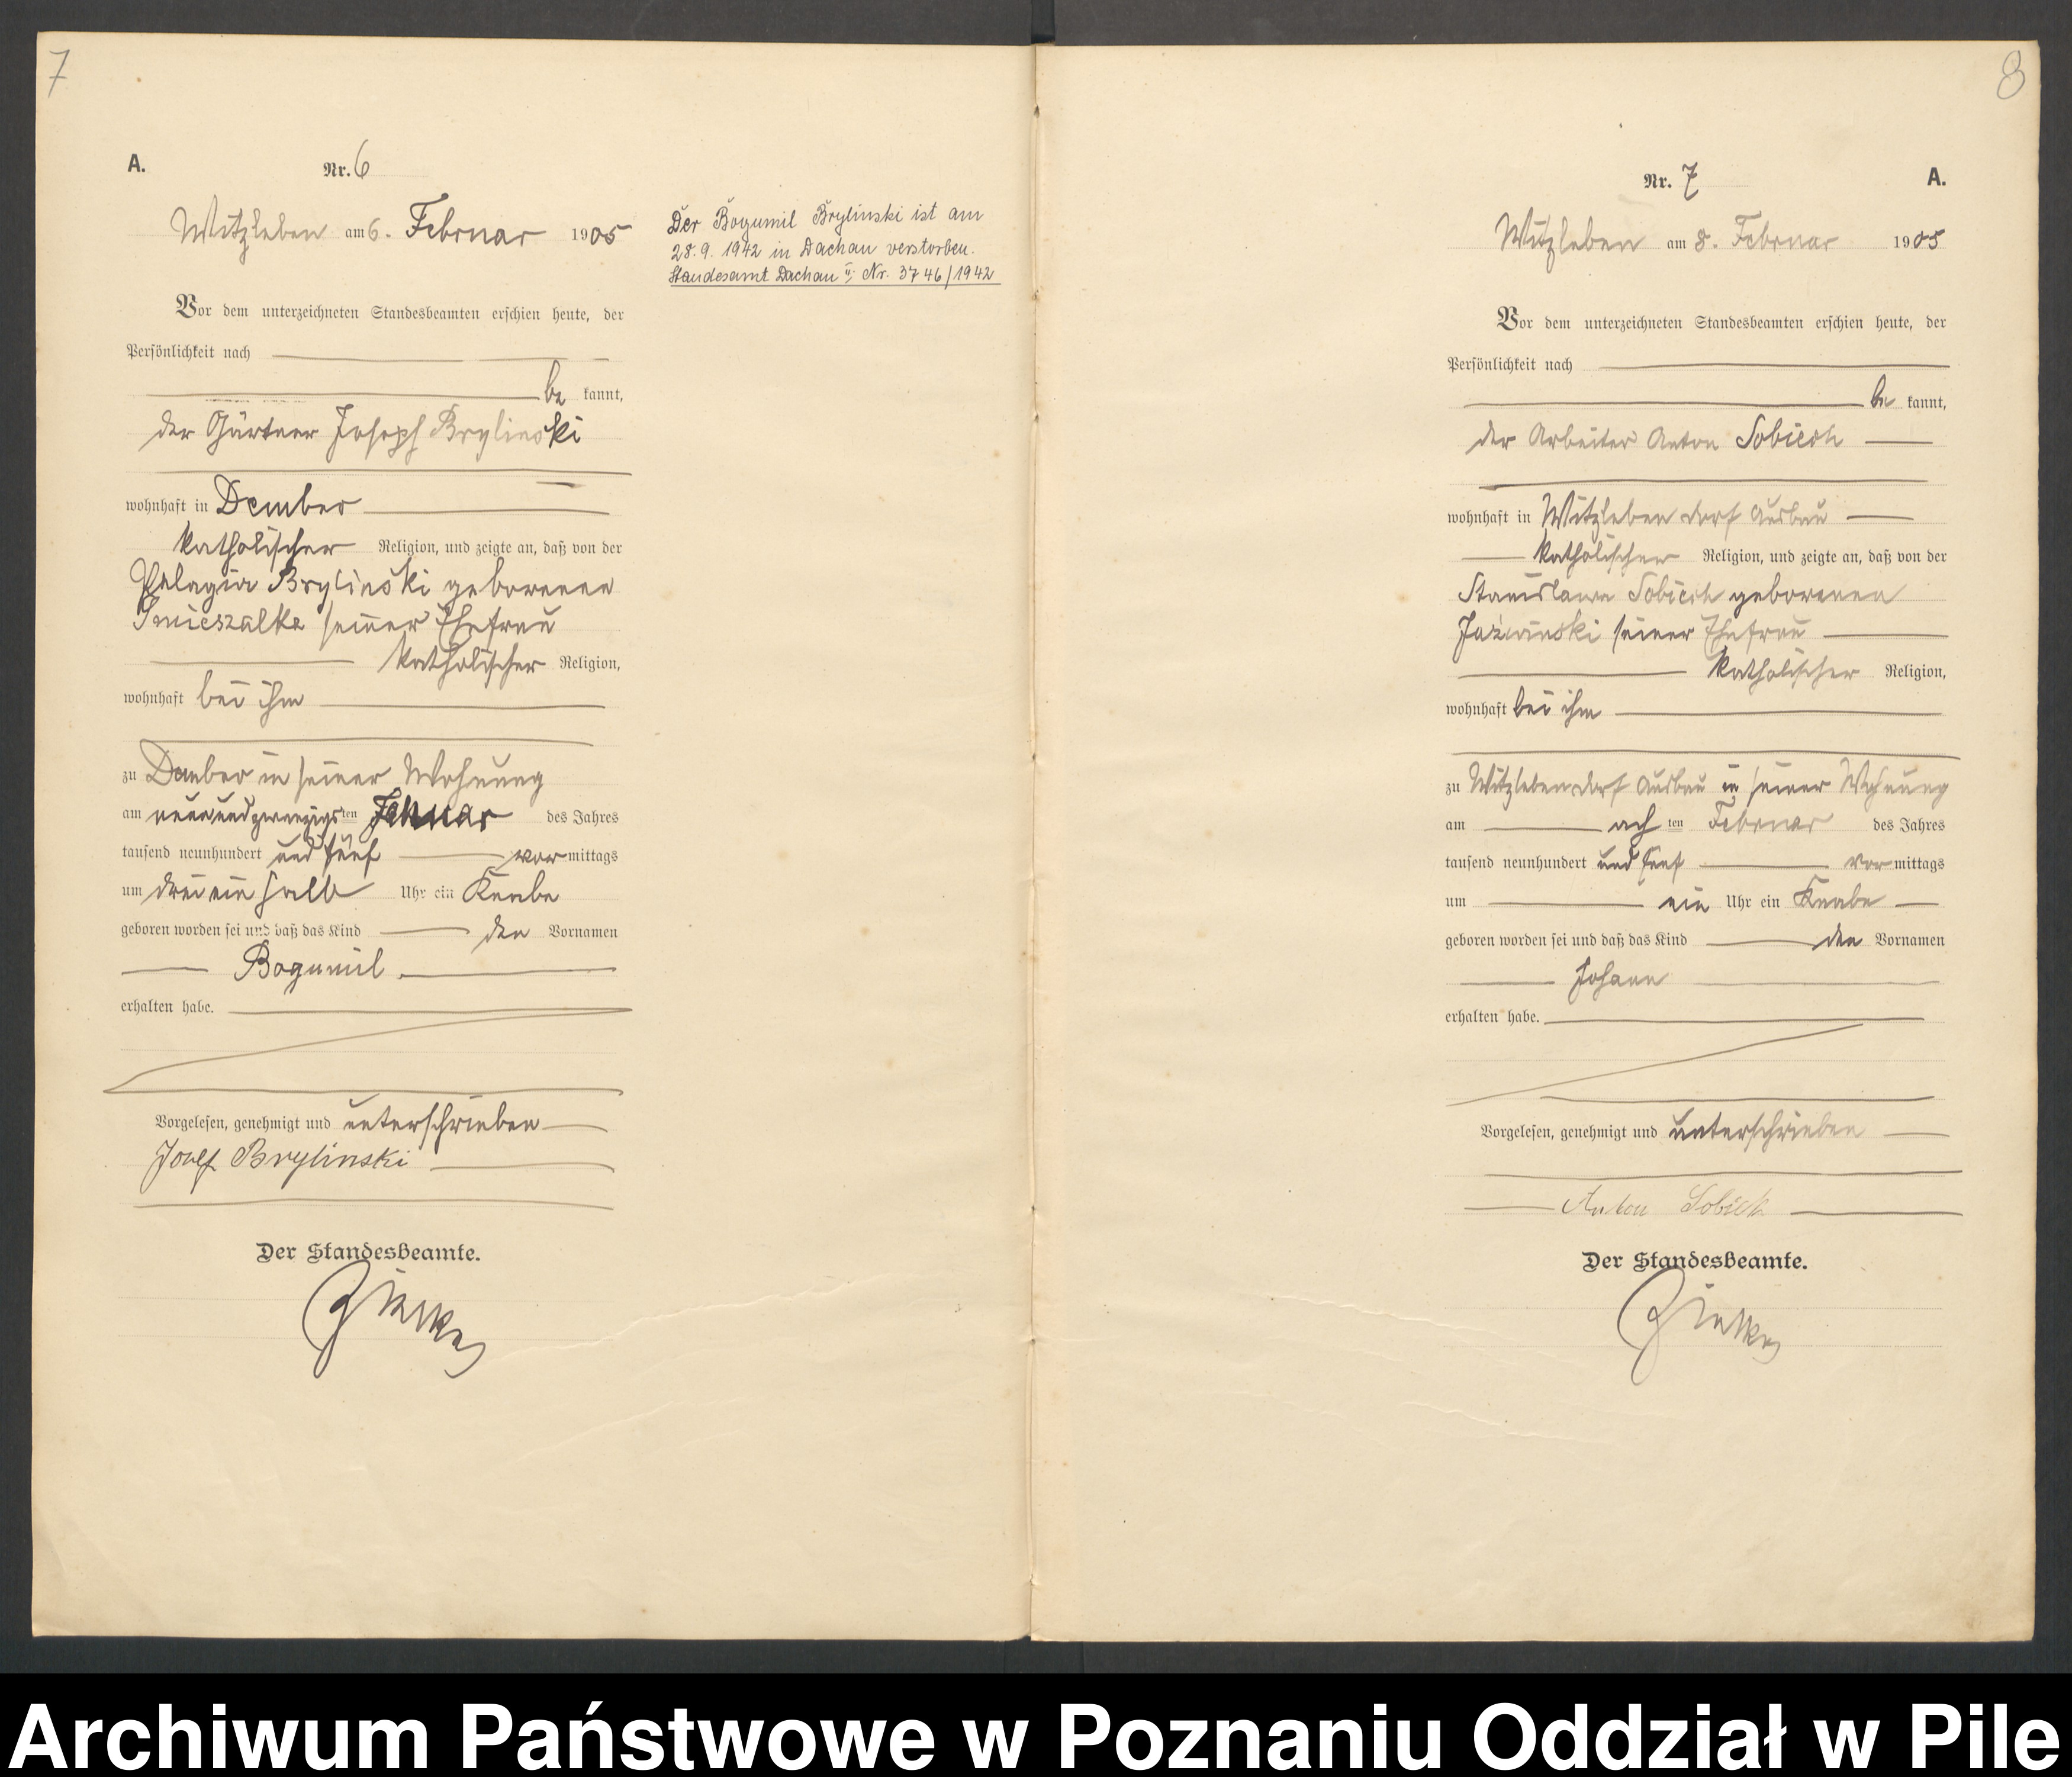 7
A.
Nr. 6
Witzleben am 6. Februar 1905
Der Bogumil Brylinski ist am
28.9.1942 in Dachau verstorben.
Standesamt Dachau II, Nr. 3746/1942
Vor dem unterzeichneten Standesbeamten erschien heute, der
Persönlichkeit nach
be kannt,
der Gärtner Joseph Brylinski
wohnhaft in Dembeo
katholischer Religion, und zeigte an, daß von der
Pelagia Brylinski geborenen
Smieszalka seiner Ehefrau
katholischer Religion,
wohnhaft bei ihm
zu Dembeo in seiner Wohnung
am neunundzwanzigsten Januar des Jahres
tausend neunhundert und fünf vor mittags
um drei ein halb Uhr ein Knabe
geboren worden sei und daß das Kind den Vornamen
Bogumil
erhalten habe.
Vorgelesen, genehmigt und unterschrieben
Josef Brylinski
Der Standesbeamte.
8
Nr. 7
A.
Witzleben am 8. Februar 1905
Vor dem unterzeichneten Standesbeamten erschien heute, der
Persönlichkeit nach
be kannt,
der Arbeiter Anton Sobiech
wohnhaft in Witzleben dorf Ausbau
katholischer Religion, und zeigte an, daß von der
Stanislawa Sobiech geborenen
Jaźwinski seiner Ehefrau
katholischer Religion,
wohnhaft bei ihm
zu Witzleben dorf Ausbau in seiner Wohnung
am ach ten Februar des Jahres
tausend neunhundert und fünf vor mittags
um ein Uhr ein Knabe
geboren worden sei und daß das Kind den Vornamen
Johann
erhalten habe.
Vorgelesen, genehmigt und unterschrieben
Anton Sobiech
Der Standesbeamte.
Archiwum Państwowe w Poznaniu Oddział w Pile